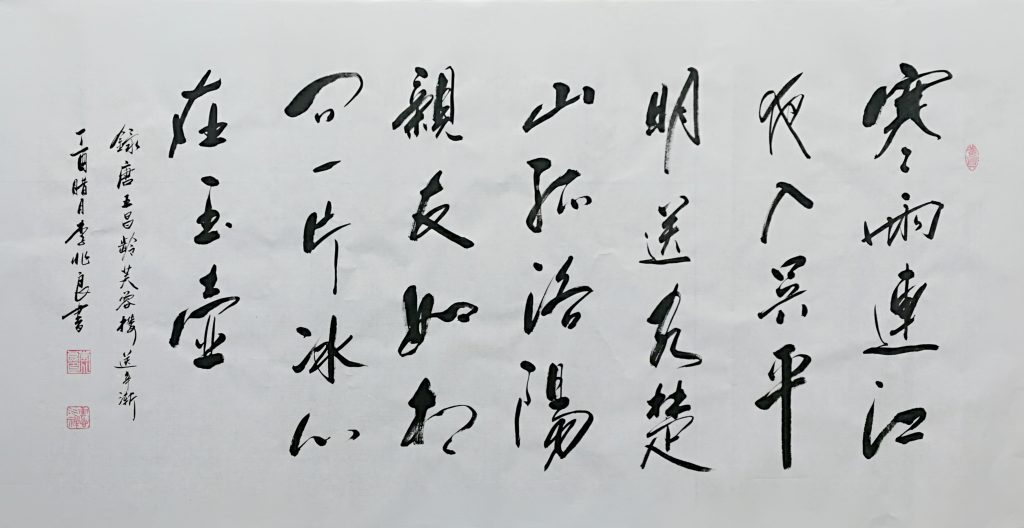 寒雨連江
夜入吴平
明送客楚
山孤洛陽
親友如相
問一片冰心
在玉壺
錄唐王昌齡芙蓉樓送辛漸
丁酉腊月李兆良書